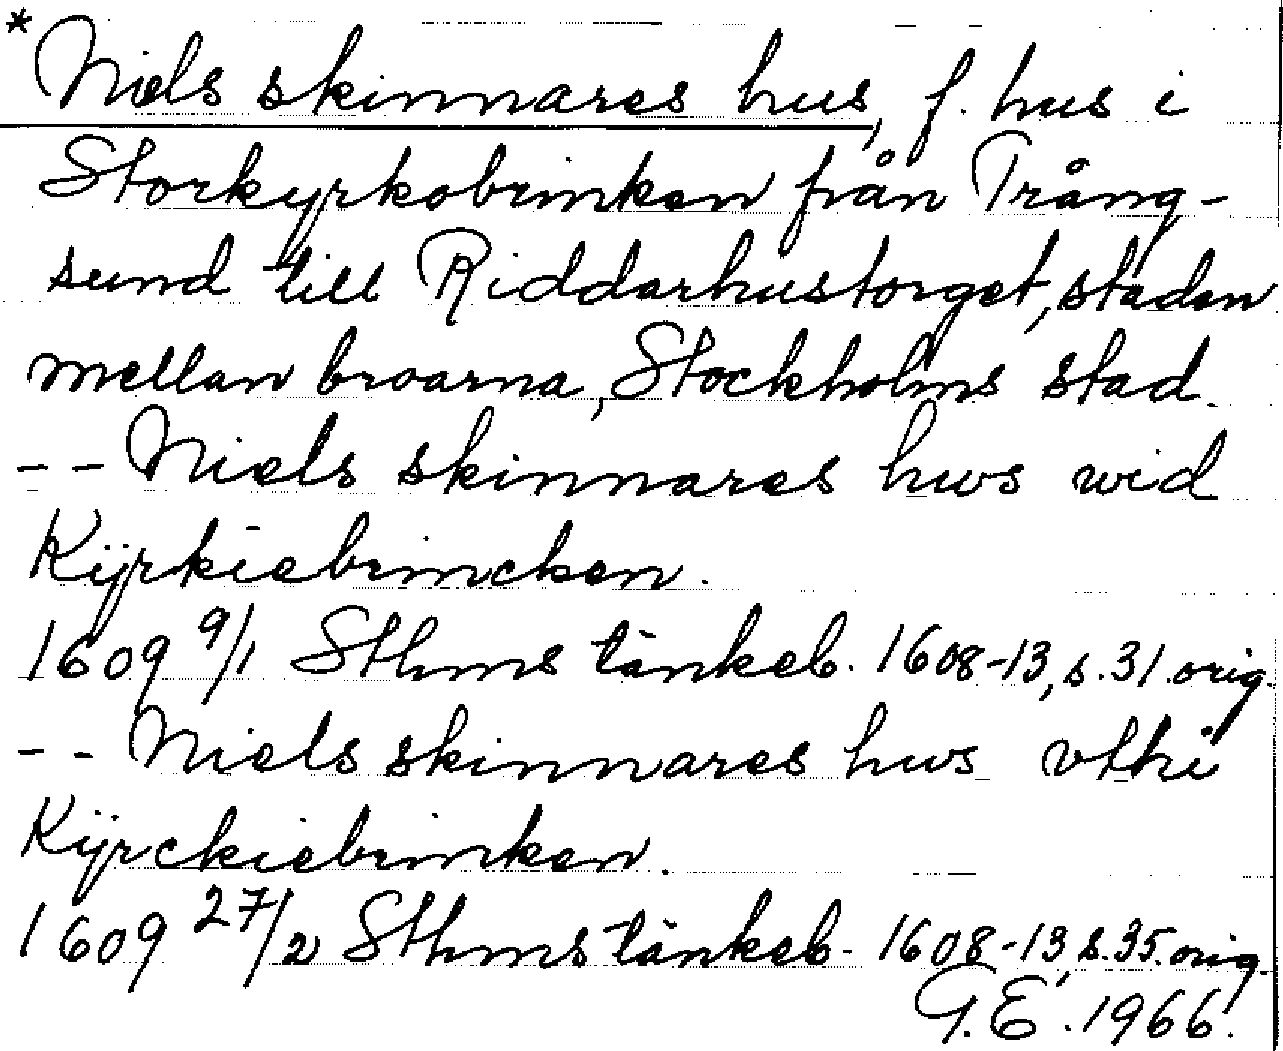 * Niels skinnares hus, f. hus i
Storkyrkobrinken från Trång-
sund till Riddarhustorget, staden
mellan broarna, Stockholms stad.
-- Niels skinnares hws wid
Kÿrkiebrincken.
1609 9/1 Sthms tänkeb. 1608-13, s. 31 orig.
-- Niels skinnares hws vthi
Kÿrckiebrinken.
1609 27/2 Sthms tänkeb. 1608-13, s. 35. orig.
G.E. 1966.